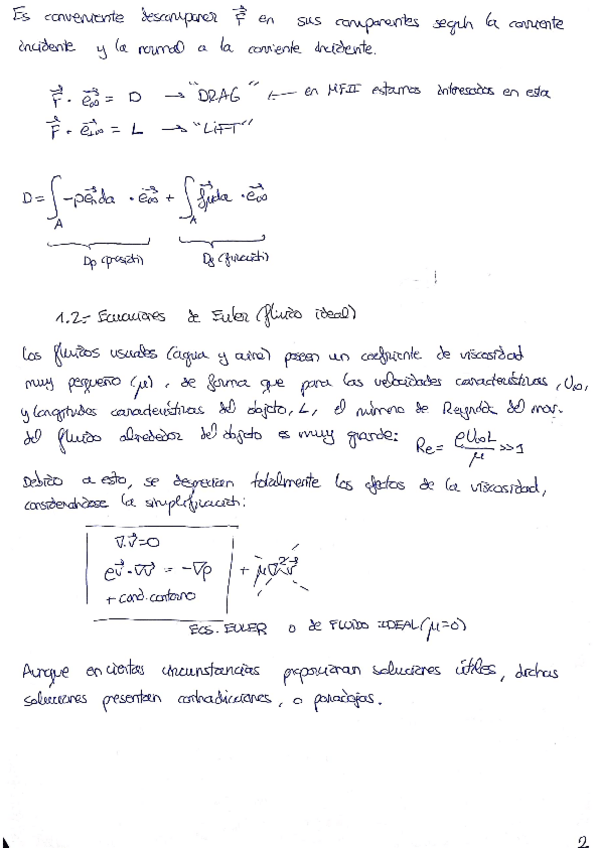 Es conveniente descomponer F⃗ en sus componentes según la corriente
incidente y la normal a la corriente incidente.
F⃗ · e⃗∞ = D → "DRAG" ← en MFII estamos interesados en esta
F⃗ · e⃗⊥∞ = L → "LIFT"
D = ∫_A -p e⃗n da · e⃗∞ + ∫_A f⃗μ da · e⃗∞
Dp (presión) Df (fricción)
1.2.- Ecuaciones de Euler (fluido ideal)
Los fluidos usuales (agua y aire) poseen un coeficiente de viscosidad
muy pequeño (μ), de forma que para las velocidades características, U∞,
y longitudes características del objeto, L, el número de Reynolds del mov.
del fluido alrededor del objeto es muy grande: Re = ρU∞L/μ >> 1
Debido a esto, se desprecian totalmente los efectos de la viscosidad,
considerándose la simplificación:
∇·v⃗=0
ρv⃗·∇v⃗ = -∇p + μ∇²v⃗
+ cond. contorno
ECS. EULER o de FLUIDO IDEAL (μ=0)
Aunque en ciertas circunstancias proporcionan soluciones útiles, dichas
soluciones presentan contradicciones, o paradojas.
2